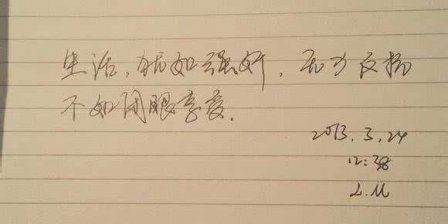 生活,就如强奸,无力反抗
不如闭眼享受.
2013.3.24
12:38
L.M